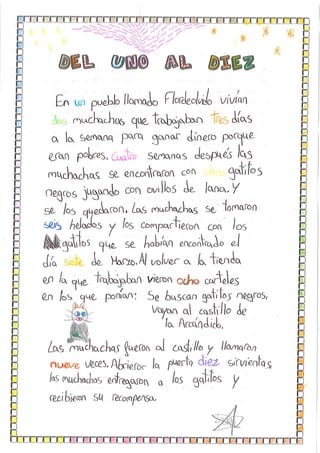 DEL UNO AL DIEZ
En un pueblo llamado Flordeolvido vivían
dos muchachas que trabajaban tres días
a la semana para ganar dinero porque
eran pobres. Cuatro semanas después las
muchachas se encontraron con cinco gatitos
negros jugando con ovillos de lana. Y
se los quedaron. Las muchachas se tomaron
seis helados y los compartieron con los
gatitos que se habían encontrado el
día siete de Marzo. Al volver a la tienda
en la que trabajaban vieron ocho carteles
en los que ponían: Se buscan gatitos negros,
vayan al castillo de
la Arcándida.
Las muchachas fueron al castillo y llamaron
nueve veces. Abrieron la puerta diez sirvientas
las muchachas entregaron a los gatitos y
recibieron su recompensa.